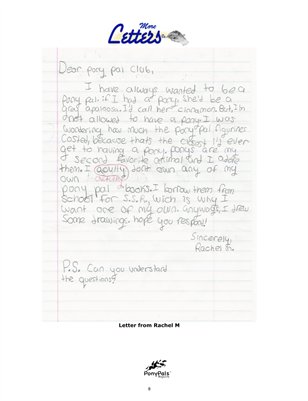 More
Letters
Dear pony pal club,
I have always wanted to be a
pony pal. if I had a pony. She'd be a
gray apalosa. I'd call her cinnamon. But, I'm
not allowed to have a pony. I was
wondering how much the Pony Pal figurines
Costed, because thats the closest I'd ever
get to having a pony. ponys are my
second favorite animal and I adore
them. I acully dont own any of my
own
pony pal books. I borrow them from
School for S.S.R., wich is why I
want one of my own. anyways, I drew
Some drawings. hope you respond!
Sincerely,
Rachel
P.S. Can you understand
the questions?
Letter from Rachel M
PonyPals